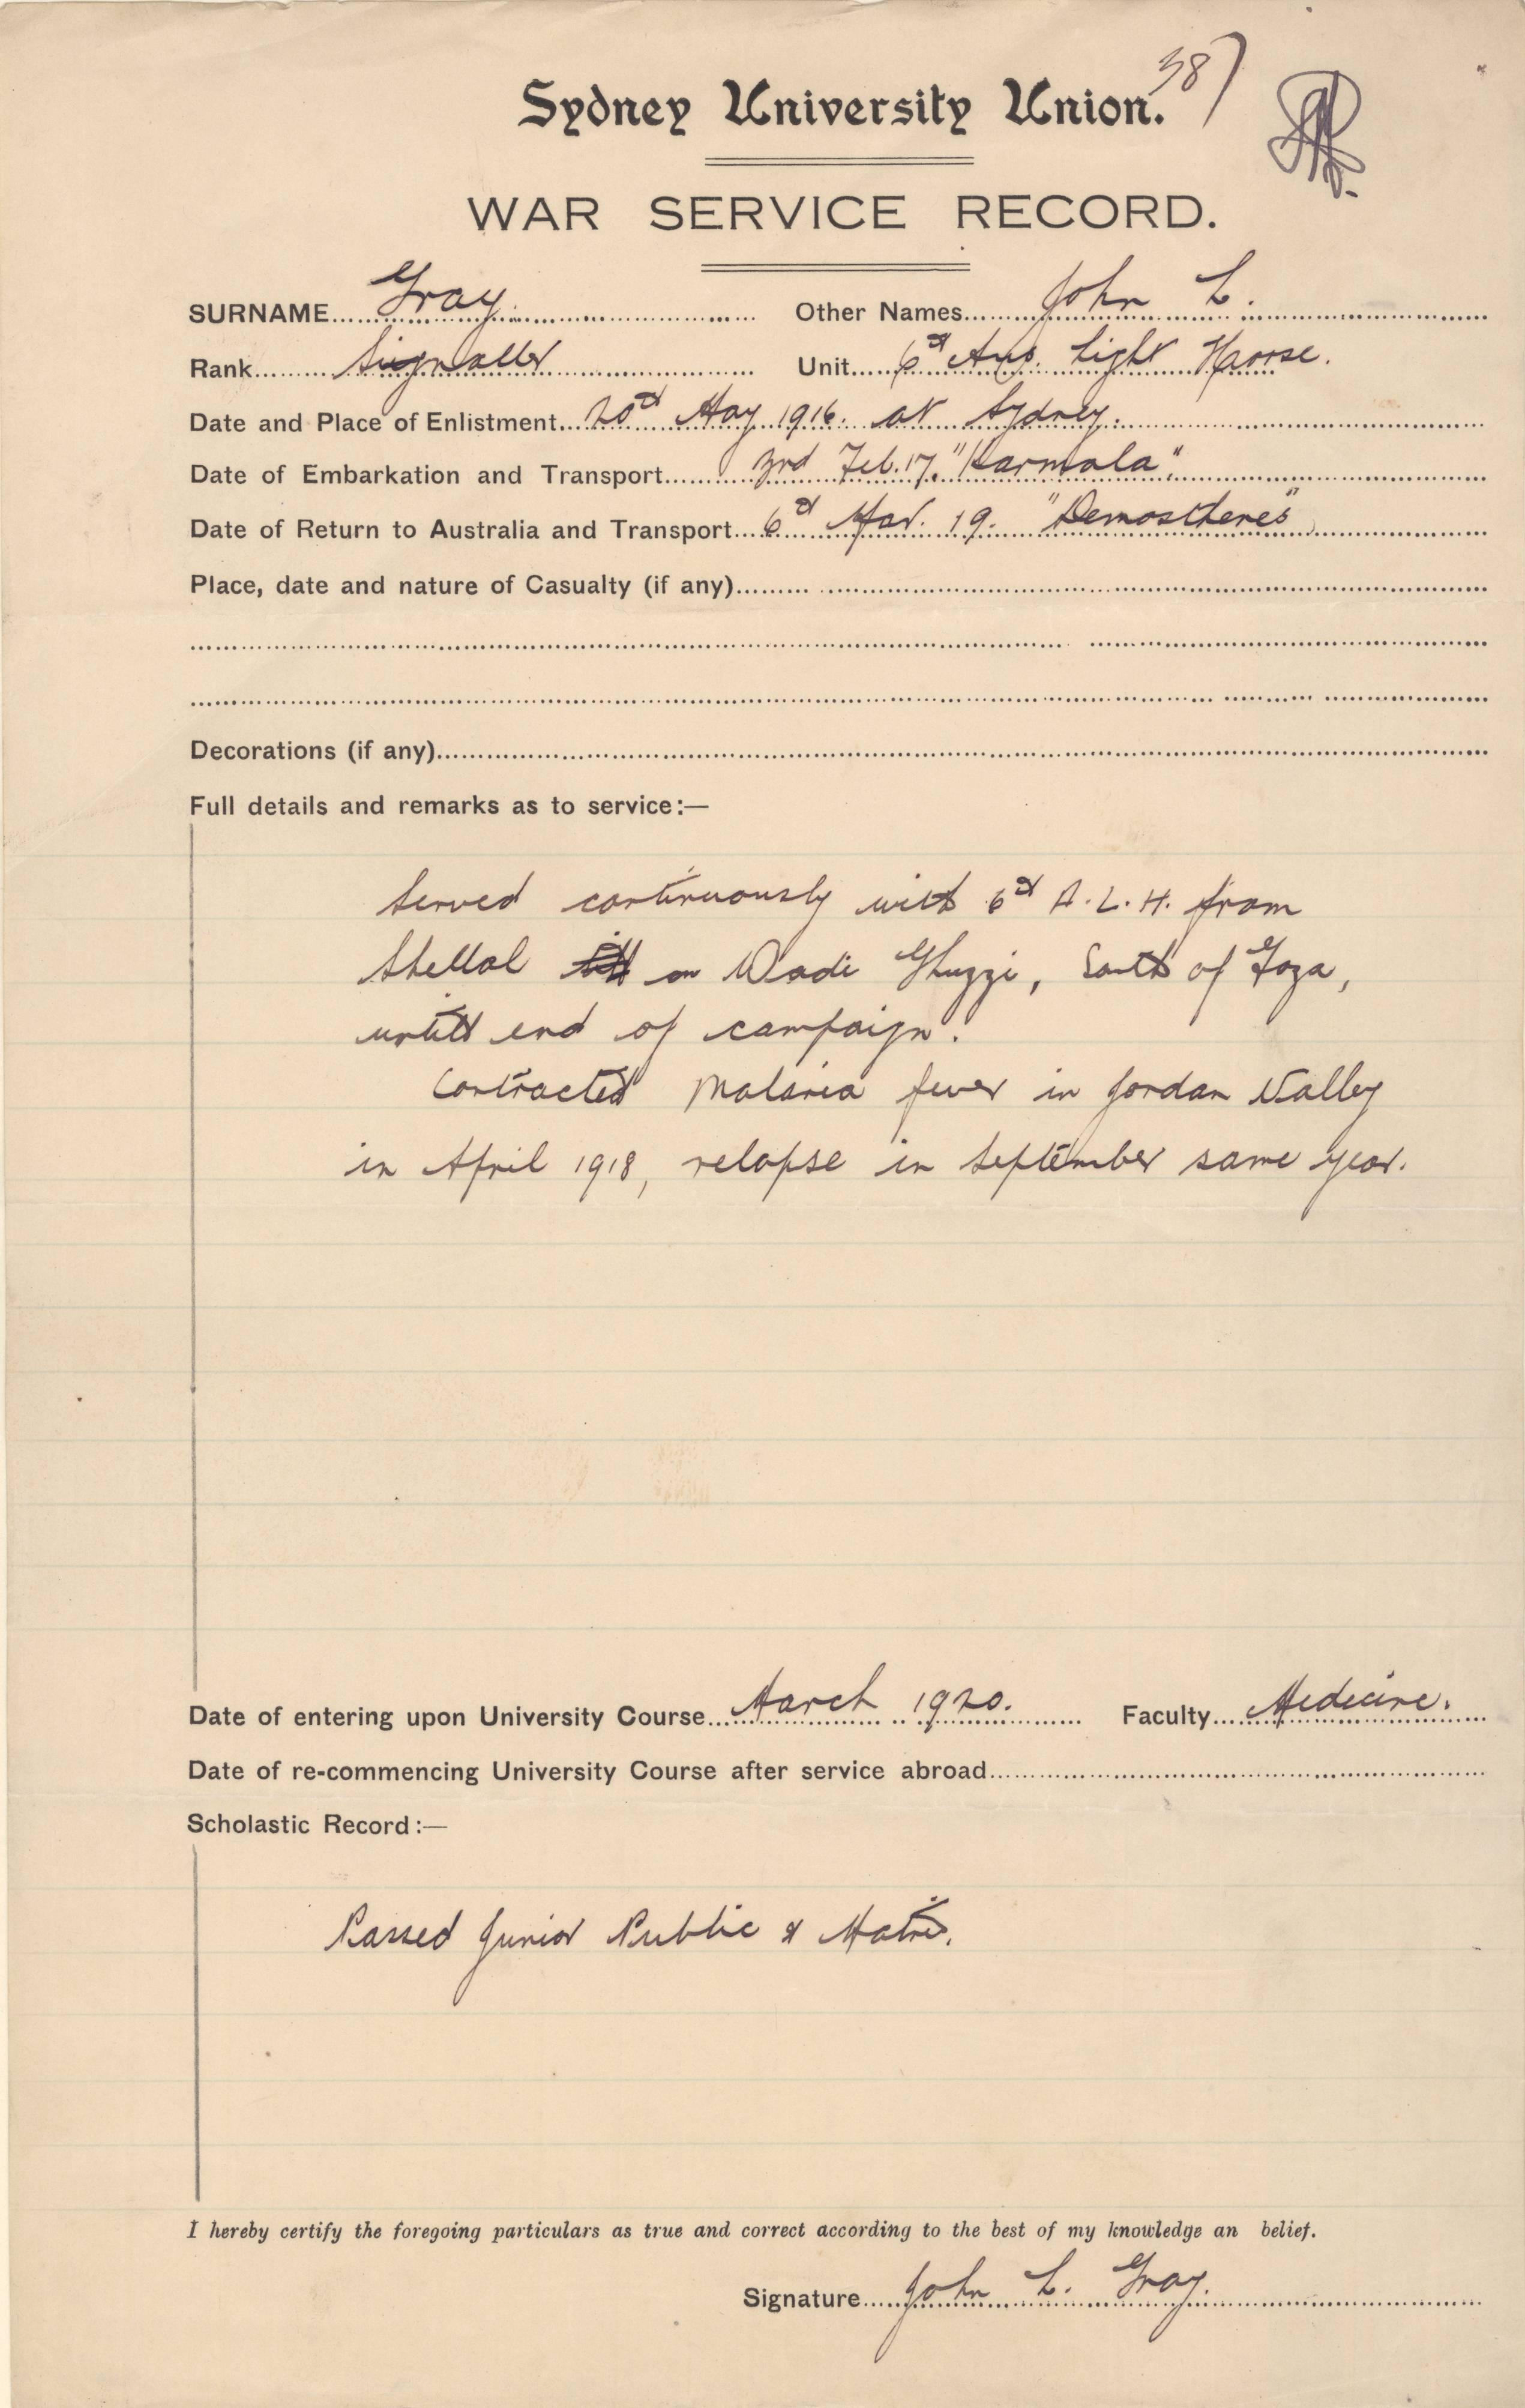 387
Sydney University Union.
WAR SERVICE RECORD.
SURNAME Gray Other Names John L.
Rank Signaller Unit 6th Aus. Light Horse.
Date and Place of Enlistment 20th May 1916. at Sydney.
Date of Embarkation and Transport 3rd Feb. 17. "Karmala".
Date of Return to Australia and Transport 6th Mar. 19. "Demosthenes"
Place, date and nature of Casualty (if any)
Decorations (if any)
Full details and remarks as to service:—
Served continuously with 6th A.L.H. from
Shellal on Wadi Ghuzzi, South of Gaza,
until end of campaign.
Contracted Malaria fever in Jordan Valley
in April 1918, relapse in September same year.
Date of entering upon University Course March 1920. Faculty Medicine.
Date of re-commencing University Course after service abroad
Scholastic Record:—
Passed Junior Public & Matric.
I hereby certify the foregoing particulars as true and correct according to the best of my knowledge an belief.
Signature John L. Gray.